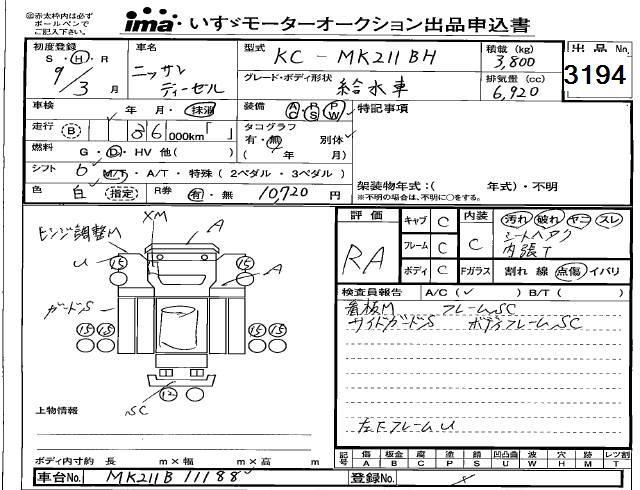 ※赤太枠内は必ず
ボールペンで
ご記入下さい。
ima いすゞモーターオークション出品申込書
初度登録
S・H・R
9/3 月
車名
ニッサン
ディーゼル
型式
KC - MK211BH
積載(kg)
3,800
グレード・ボディ形状
給水車
排気量(cc)
6,920
出品No.
3194
車検 年 月・抹消
装備 AC PS PW
特記事項
走行(B) 36 000km「 」
タコグラフ
有・無 別体
( 年 月)
燃料 G・D・HV 他( )
シフト 6 M/T・A/T・特殊(2ペダル・3ペダル)
色 白 (指定)
R券 有・無 10,720 円
架装物年式:( 年式)・不明
※不明の場合は、不明に○をする。
XM
A
ヒンジ調整M
U
15
15
A
ガードS
15 15
15 15
SC
12
上物情報
ボディ内寸約 長 m×幅 m×高 m
車台No. MK211B 11188
評価
RA
キャブ C
フレーム C
ボディ C
内装
C
Fガラス
汚れ 破れ ヤニ スレ
シートヘタク
内張T
割れ 線 点傷 イバリ
検査員報告 A/C(✓) B/T( )
看板M フレームSC
サイドガードS ボディフレームSC
左下フレームU
記号
傷 板金 腐 塗 錆 凹凸曲 波 穴 跡 レツ割
A B C P S U W H M T
登録No.